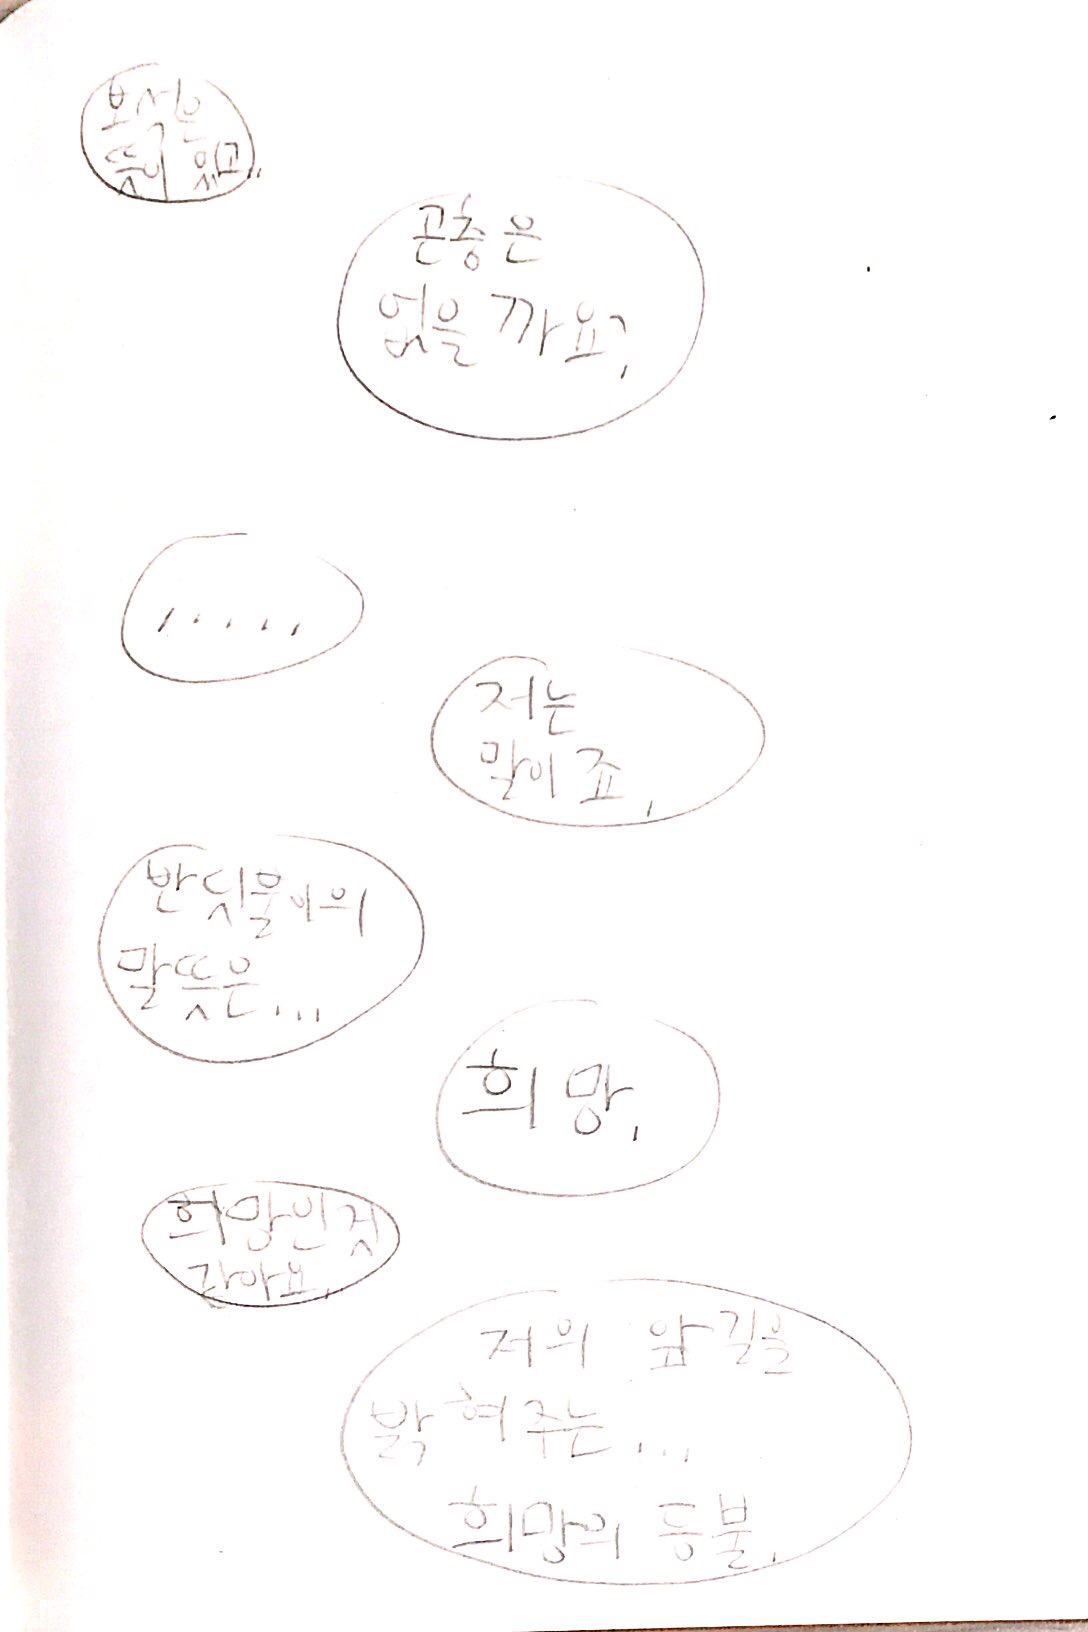 보석은
뜻이 있고..
곤충은
없을까요?.
.....
저는
말이죠.
반딧불이의
말뜻은...
희망.
희망인것
같아요.
저의 앞길을
밝혀주는...
희망의 동물.